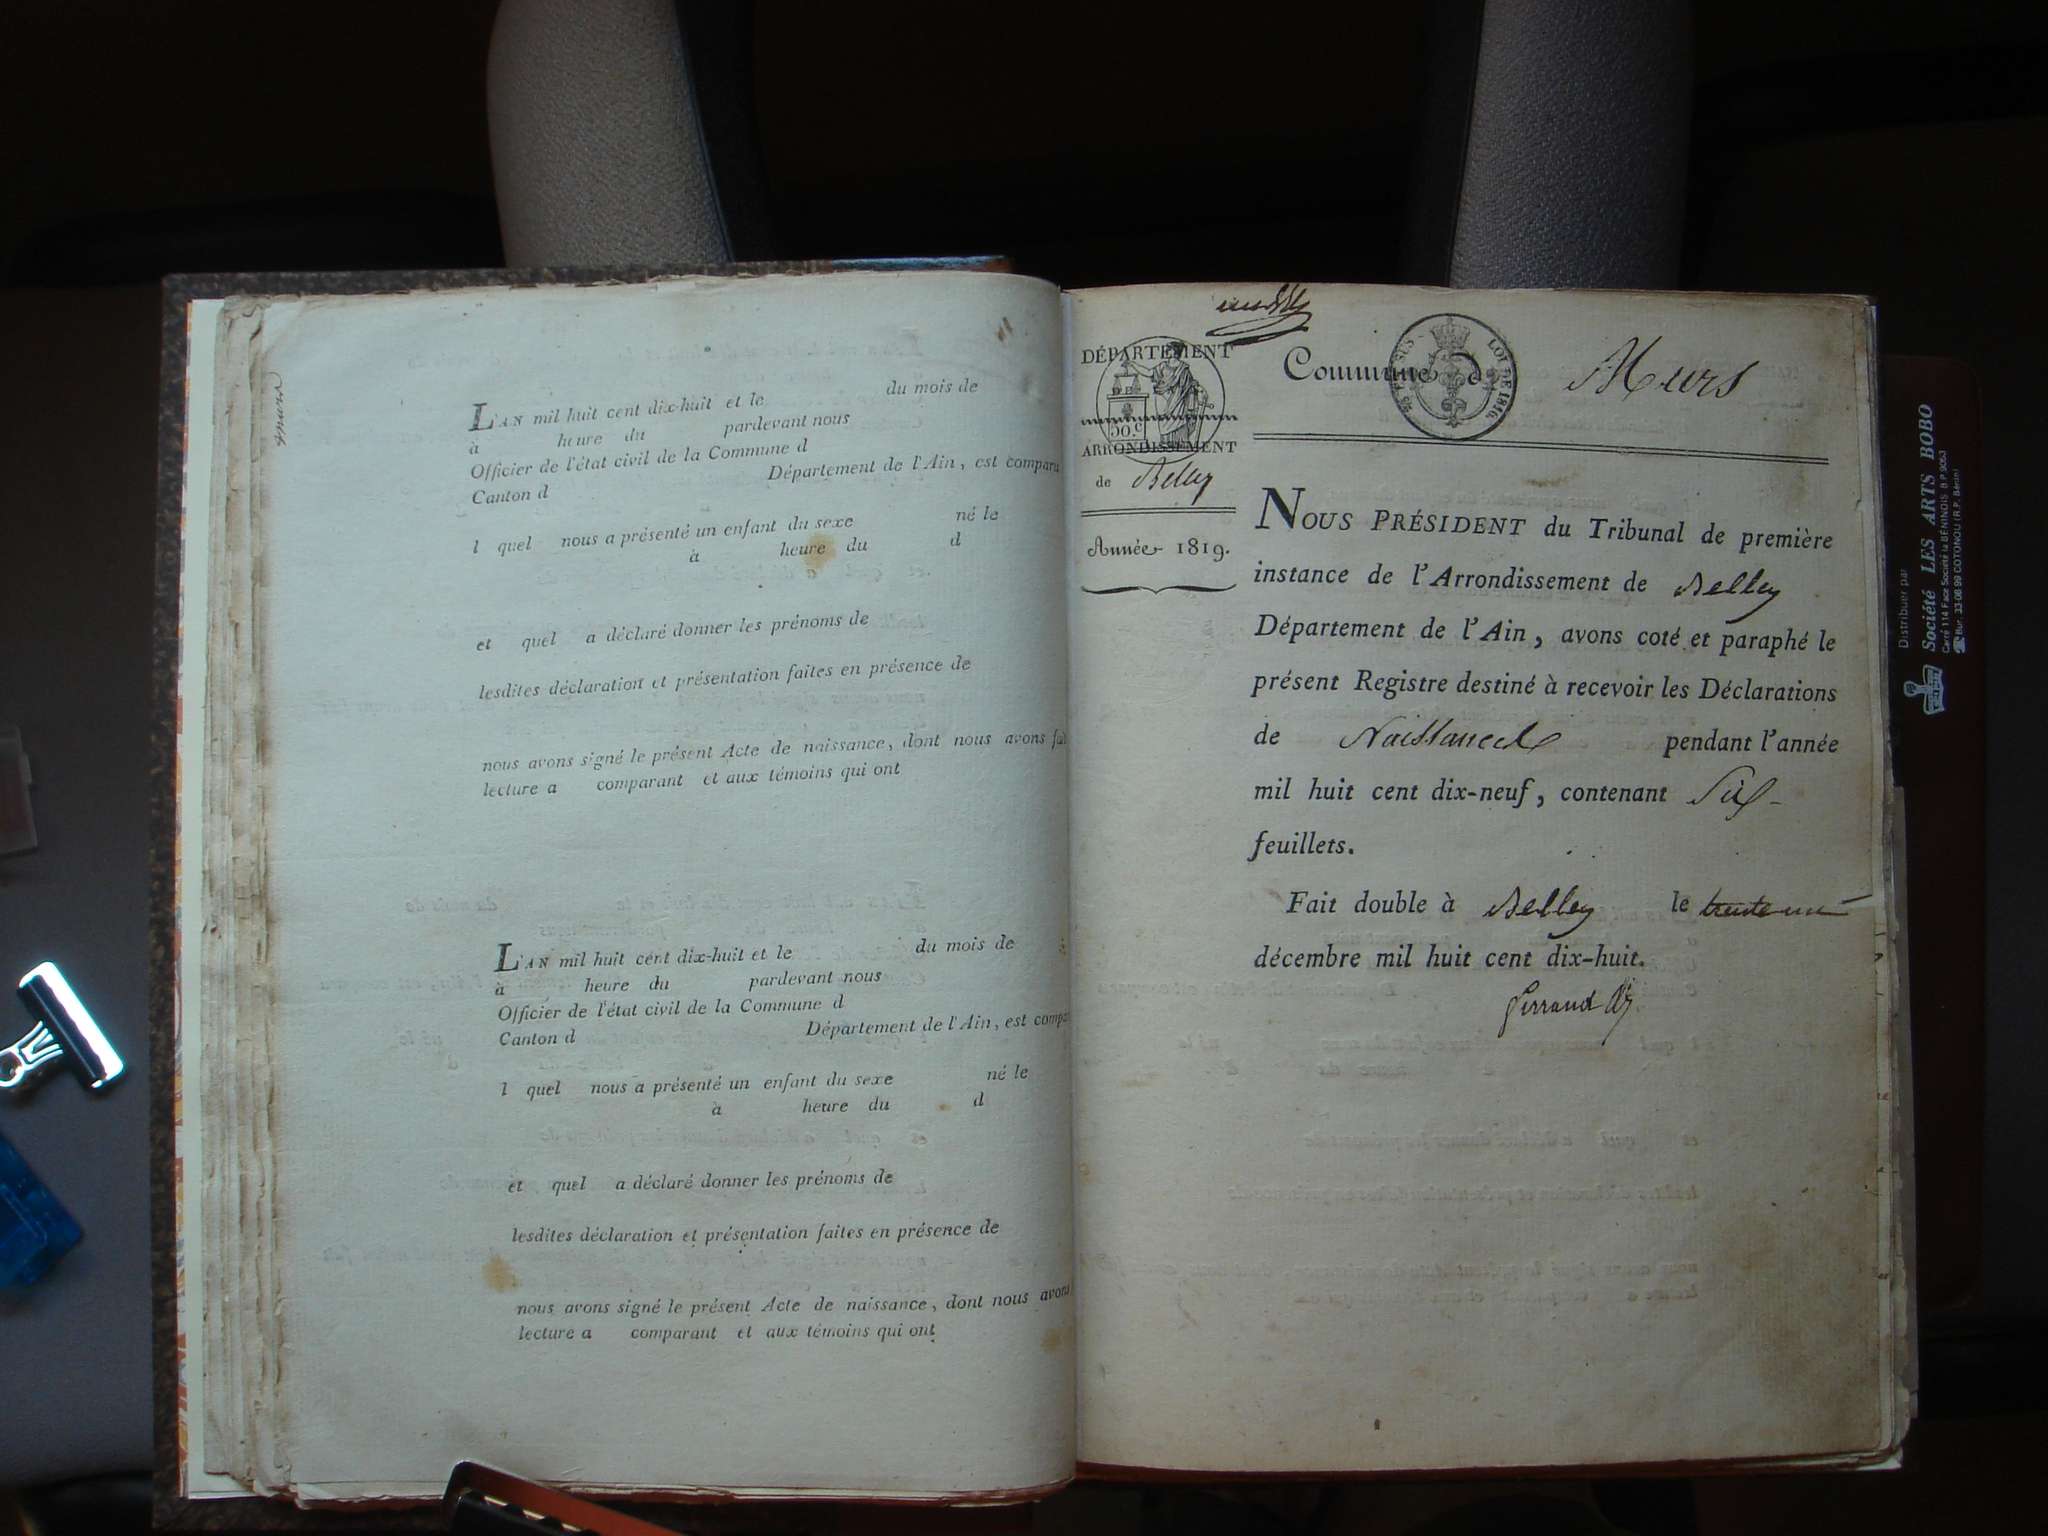 murs
L'AN mil huit cent dix-huit et le du mois de
à heure du pardevant nous
Officier de l'état civil de la Commune d
Canton d Département de l'Ain, est comparu
l quel nous a présenté un enfant du sexe né le
à heure du d
et quel a déclaré donner les prénoms de
lesdites déclaration et présentation faites en présence de
nous avons signé le présent Acte de naissance, dont nous avons fait
lecture a comparant et aux témoins qui ont
L'AN mil huit cent dix-huit et le du mois de
à heure du pardevant nous
Officier de l'état civil de la Commune d
Canton d Département de l'Ain, est compa
l quel nous a présenté un enfant du sexe né le
à heure du d
et quel a déclaré donner les prénoms de
lesdites déclaration et présentation faites en présence de
nous avons signé le présent Acte de naissance, dont nous avons
lecture a comparant et aux témoins qui ont
DÉPARTEMENT
50.c
ARRONDISSEMENT
de Belley
Année 1819.
Commune d Murs
LOI DE 1816.
NOUS PRÉSIDENT du Tribunal de première
instance de l'Arrondissement de Belley
Département de l'Ain, avons coté et paraphé le
présent Registre destiné à recevoir les Déclarations
de Naissances pendant l'année
mil huit cent dix-neuf, contenant Six
feuillets.
Fait double à Belley le trente un
décembre mil huit cent dix-huit.
Distribuer par
Société LES ARTS BOBO
Carré 114 Face Société la BÉNINOIS B.P. 9053
Bur. 33-08-99 COTONOU (R.P. Bénin)